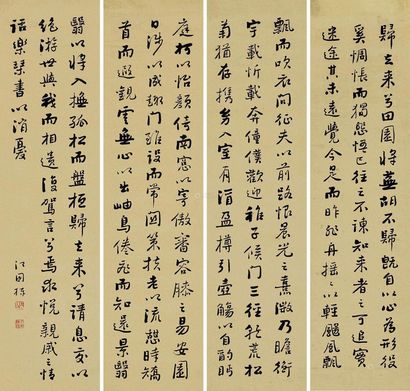 歸去来兮田園將蕪胡不歸既自以心為形役
奚惆悵而獨悲悟已往之不諫知来者之可追實
迷途其未遠覺今是而昨非舟搖以輕颺風飄
飄而吹衣問征夫以前路恨晨光之熹微乃瞻衡
宇載忻載奔僮僕歡迎稚子候門三徑就荒松
菊猶存携幼入室有酒盈樽引壺觴以自酌眄
庭柯以怡顏倚南窓以寄傲審容膝之易安園
日涉以成趣門雖設而常関策扶老以流憩時矯
首而遐觀雲無心以出岫鳥倦飛而知還景翳
翳以將入撫孤松而盤桓歸去来兮請息交以
絕游世與我而相遺復駕言兮焉求悅親戚之情
話樂琴書以消憂